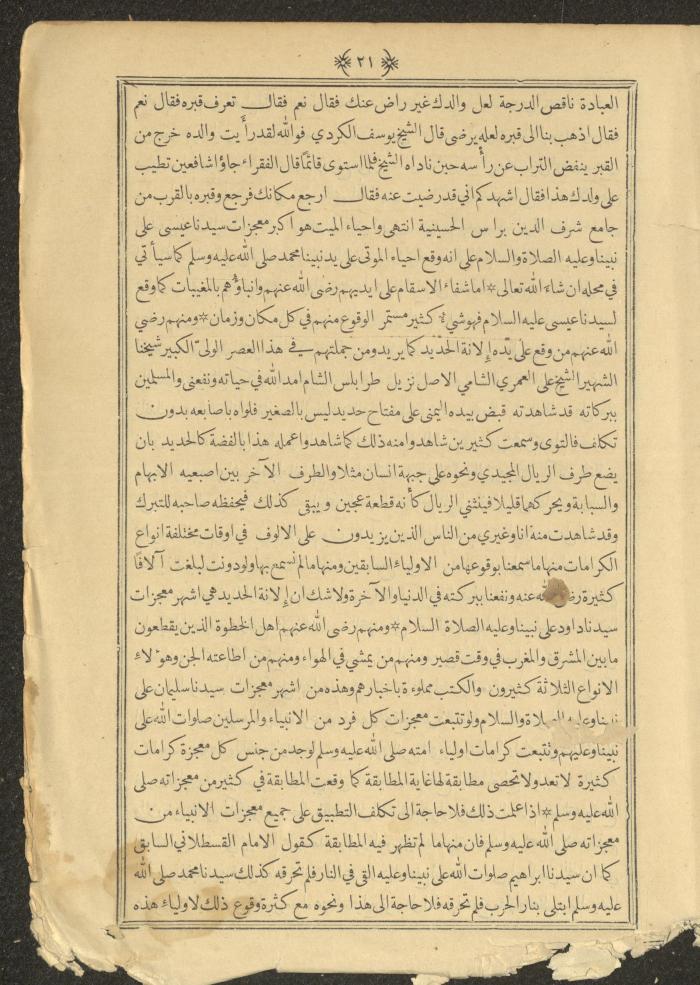 ﴿ ٢١ ﴾
العبادة ناقص الدرجة لعل والدك غير راض عنك فقال نعم فقال تعرف قبره فقال نعم
فقال اذهب بنا الى قبره لعله يرضى قال الشيخ يوسف الكردي فوالله لقد رأيت والده خرج من
القبر ينفض التراب عن رأسه حين ناداه الشيخ فلما استوى قائمًا قال الفقراء جاؤا شافعين تطيب
على ولدك هذا فقال اشهدكم اني قد رضيت عنه فقال ارجع مكانك فرجع وقبره بالقرب من
جامع شرف الدين براس الحسينية انتهى واحياء الميت هو اكبر معجزات سيدنا عيسى على
نبينا وعليه الصلاة والسلام على انه وقع احياء الموتى على يد نبينا محمد صلى الله عليه وسلم كما سيأتي
في محله ان شاء الله تعالى * اما شفاء الاسقام على ايديهم رضى الله عنهم وانباؤهم بالمغيبات كما وقع
لسيدنا عيسى عليه السلام فهو شيء كثير مستمر الوقوع منهم في كل مكان وزمان * ومنهم رضي
الله عنهم من وقع على يده إلانة الحديد كما يريد ومن جملتهم في هذا العصر الولىّ الكبير شيخنا
الشهير الشيخ على العمري الشامي الاصل نزيل طرابلس الشام امد الله في حياته ونفعنى والمسلمين
ببركاته قد شاهدته قبض بيده اليمنى على مفتاح حديد ليس بالصغير فلواه باصابعه بدون
تكلف فالتوى وسمعت كثيرين شاهدوا منه ذلك كما شاهدوا عمله هذا بالفضة كالحديد بان
يضع طرف الريال المجيدي ونحوه على جبهة انسان مثلا والطرف الآخر بين اصبعيه الابهام
والسبابة ويحركهما قليلا فينثني الريال كأنه قطعة عجين ويبقى كذلك فيحفظه صاحبه للتبرك
وقد شاهدت منه انا وغيري من الناس الذين يزيدون على الالوف في اوقات مختلفة انواع
الكرامات منها ما سمعنا بوقوعها من الاولياء السابقين ومنها ما لم نسمع بها ولو دونت لبلغت آلافًا
كثيرة رضى الله عنه ونفعنا ببركته في الدنيا والآخرة ولا شك ان إلانة الحديد هي اشهر معجزات
سيدنا داود على نبينا وعليه الصلاة السلام * ومنهم رضى الله عنهم اهل الخطوة الذين يقطعون
ما بين المشرق والمغرب في وقت قصير ومنهم من يمشي في الهواء ومنهم من اطاعته الجن وهؤلاء
الانواع الثلاثة كثيرون والكتب مملوءة باخبارهم وهذه من اشهر معجزات سيدنا سليمان على
نبينا وعليه الصلاة والسلام ولو تتبعت معجزات كل فرد من الانبياء والمرسلين صلوات الله على
نبينا وعليهم وتتبعت كرامات اولياء امته صلى الله عليه وسلم لوجد من جنس كل معجزة كرامات
كثيرة لا تعد ولا تحصى مطابقة لها غاية المطابقة كما وقعت المطابقة في كثير من معجزاته صلى
الله عليه وسلم * اذا علمت ذلك فلا حاجة الى تكلف التطبيق على جميع معجزات الانبياء من
معجزاته صلى الله عليه وسلم فان منها ما لم تظهر فيه المطابقة كقول الامام القسطلاني السابق
كما ان سيدنا ابراهيم صلوات الله على نبينا وعليه القى في النار فلم تحرقه كذلك سيدنا محمد صلى الله
عليه وسلم ابتلى بنار الحرب فلم تحرقه فلا حاجة الى هذا ونحوه مع كثرة وقوع ذلك لاولياء هذه